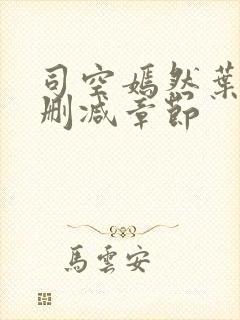 司空嫣然葉
刪減章節
馬雲安